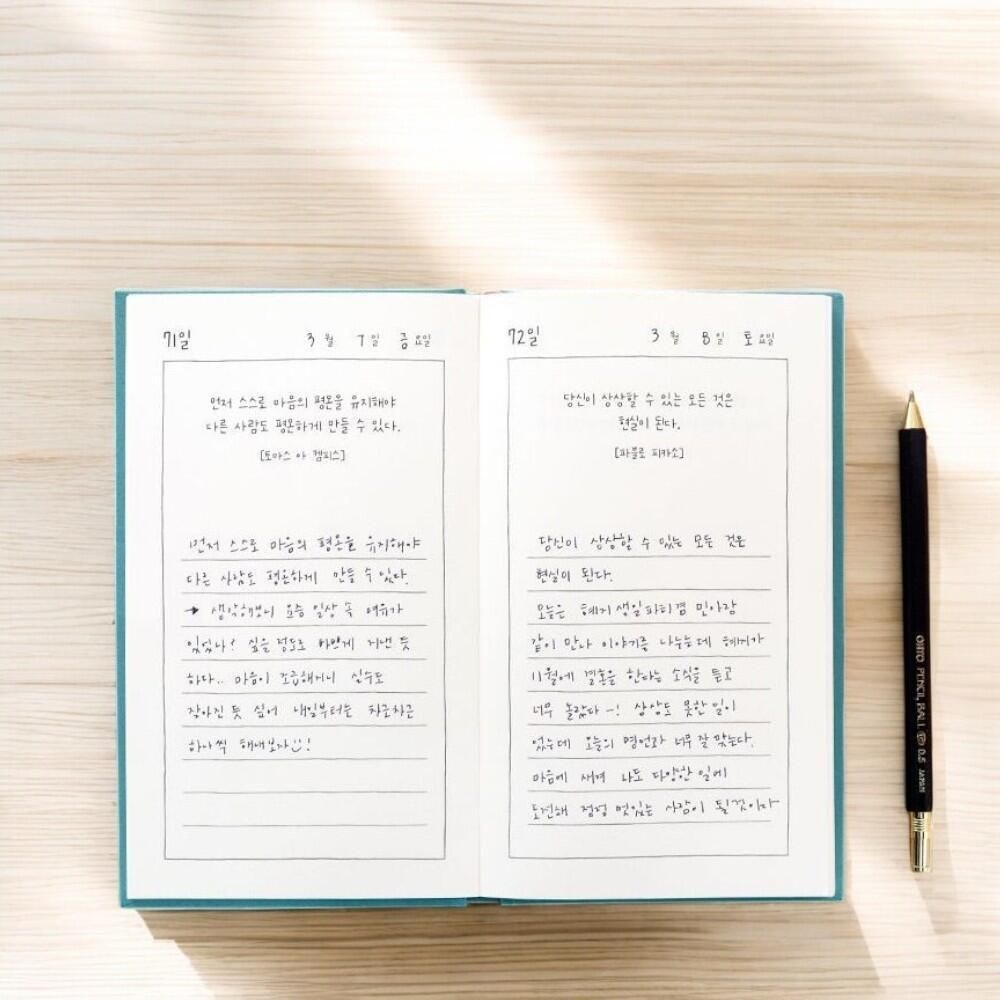 71일 3월 7일 금요일
먼저 스스로 마음의 평온을 유지해야
다른 사람도 평온하게 만들 수 있다.
[토마스 아 켐피스]
먼저 스스로 마음의 평온을 유지해야
다른 사람도 평온하게 만들 수 있다.
→ 생각해보니 요즘 일상 속 여유가
있었나? 싶을 정도로 바쁘게 지낸 듯
하다.. 마음이 조급해지니 실수도
잦아진 듯 싶어 내일부터는 차근차근
하나씩 해내보자!
72일 3월 8일 토요일
당신이 상상할 수 있는 모든 것은
현실이 된다.
[파블로 피카소]
당신이 상상할 수 있는 모든 것은
현실이 된다.
오늘은 혜지 생일파티겸 민아랑
같이 만나 이야기를 나누는데 혜지가
11월에 결혼을 한다는 소식을 듣고
너무 놀랐다-! 상상도 못한 일이
었는데 오늘의 명언과 너무 잘 맞는다.
마음에 새겨 나도 다양한 일에
도전해 점점 멋있는 사람이 될것이다
OHTO PENCIL BALL 0.5 JAPAN